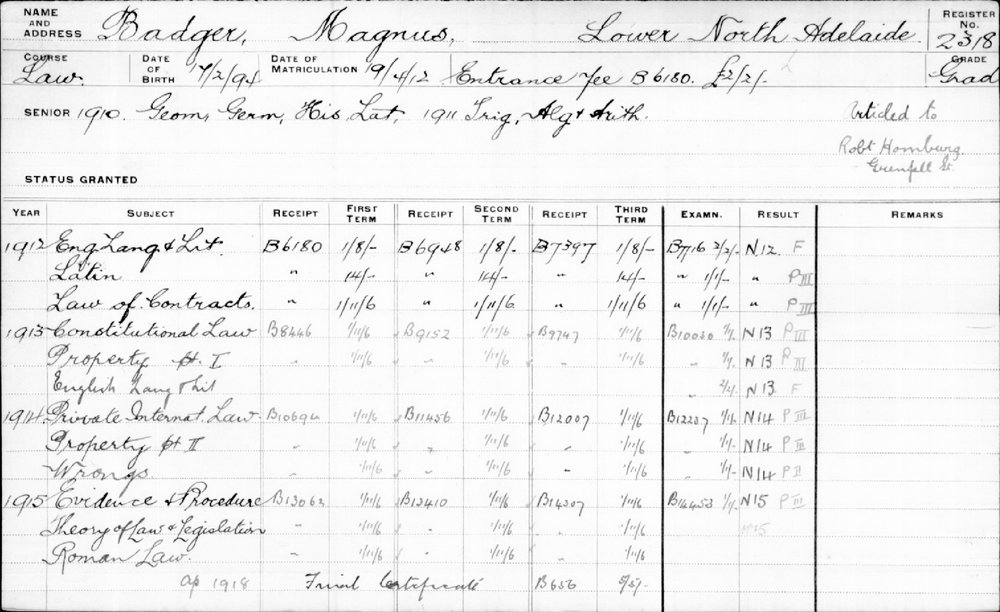 NAME AND ADDRESS Badger, Magnus, Lower North Adelaide. REGISTER No. 2318
COURSE Law. DATE OF BIRTH 17/2/94 DATE OF MATRICULATION 19/4/12 Entrance Fee B6180. £2/2/-. GRADE Grad
SENIOR 1910. Geom, Germ, His, Lat, 1911 Trig, Alg & Arith. Articled to
Robt Homburg
Grenfell St.
STATUS GRANTED
YEAR SUBJECT RECEIPT FIRST TERM RECEIPT SECOND TERM RECEIPT THIRD TERM EXAMN. RESULT REMARKS
1912 Eng. Lang & Lit. B6180 1/8/- B6948 1/8/- B7397 1/8/- B7716 2/2/- N12. F
Latin " 14/- " 14/- " 14/- " 1/1/- " P III
Law of Contracts. " 1/11/6 " 1/11/6 " 1/11/6 " 1/1/- " P III
1913 Constitutional Law B8446 1/11/6 B9152 1/11/6 B9747 1/11/6 B10030 1/1. N13 P III
Property pt. I " 1/11/6 " 1/11/6 " 1/11/6 " 1/1. N13 P III
English Lang & Lit " 2/2. N13 F
1914 Private Internat. Law B10694 1/11/6 B11456 1/11/6 B12007 1/11/6 B12237 1/1. N14 P III
Property pt II " 1/11/6 " 1/11/6 " 1/11/6 " 1/1. N14 P III
Wrongs " 1/11/6 " 1/11/6 " 1/11/6 " 1/1. N14 P II
1915 Evidence & Procedure B13062 1/11/6 B13410 1/11/6 B14307 1/11/6 B14453 1/1. N15 P III
Theory of Law & Legislation " 1/11/6 " 1/11/6 " 1/11/6 N15
Roman Law. " 1/11/6 " 1/11/6 " 1/11/6
Ap 1918 Final Certificate B656 5/5/-